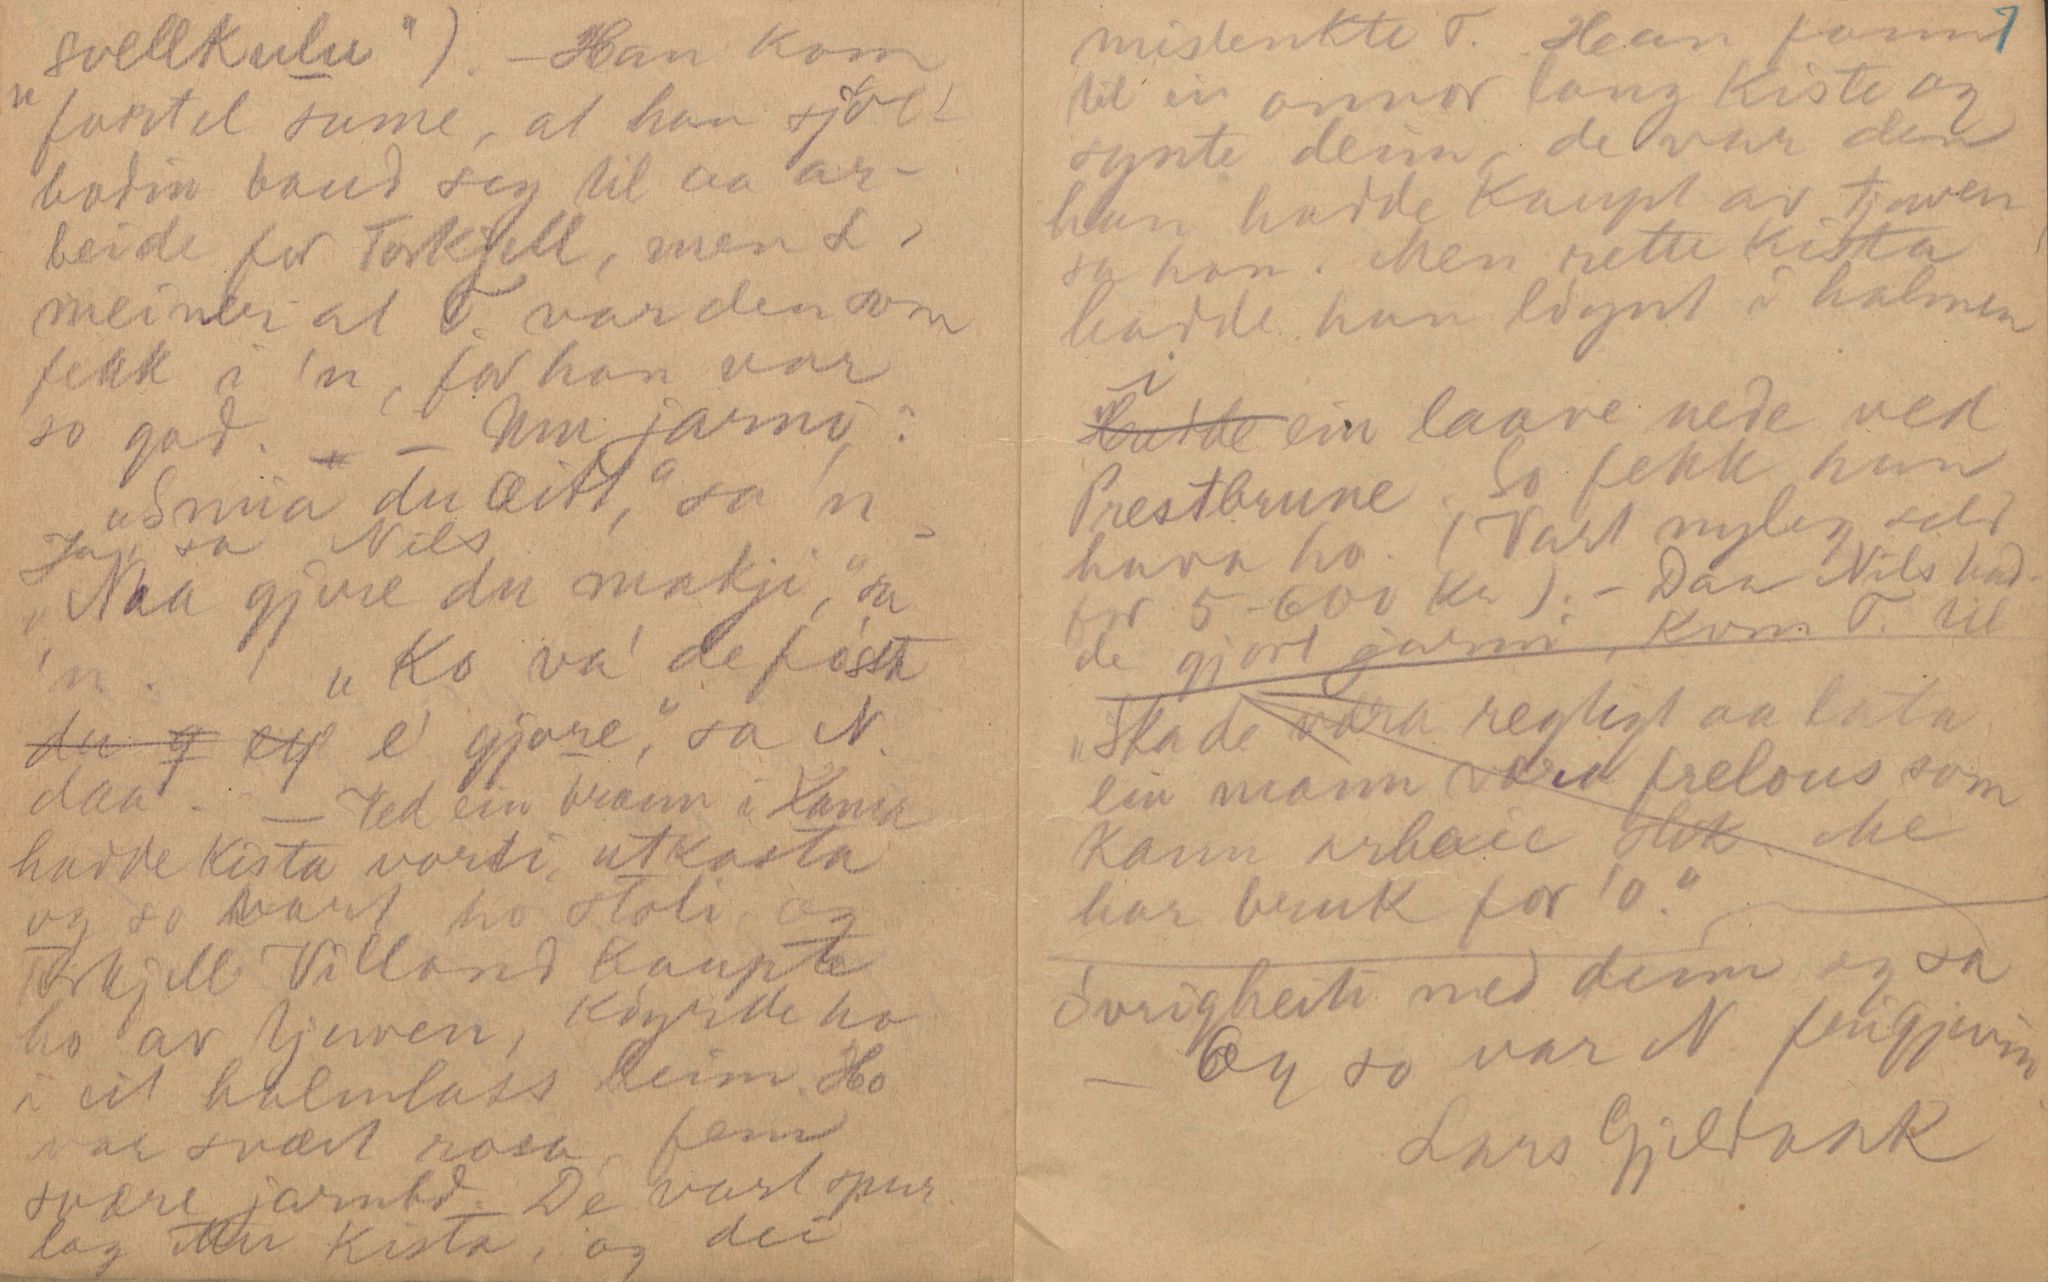 „svellkulu"). - Han kom
fortel sume, at han sjøl-
bodin baud seg til aa ar-
beide for Torkjell, men L.
meiner at T. var den som
fekk i 'n, for han var
so god. - Um jarni:
„Smia du eitt," sa 'n
Ja, sa Nils
„Naa gjere du makji," sa
'n. „Ko va' de fösta
du g eg e' gjore," sa N.
daa. - Ved ein brann i
hadde kista vorti utkasta
og so vart ho stoli, og
Torkjell Villand kaupte
ho av tjuven, köyrde ho
i eit halmlass heim. Ho
var svært rosa, fem
svære jarnbd. De vart spur
lag um kista, og dei
7
mistenkte T. Han fann
til ei onnor lang kiste og
synte deim, de var den
han hadde kaupt av tjuven,
sa han. Men rette kista
hadde han löynt i halmen
i
hadde ein laave nede ved
Prestbrune. So fekk han
hava ho. (Vart nyleg seld
for 5-600 kr). - Daa Nils had-
de gjort jarni, kom T. til
„Ska de vera regtigt aa lata
ein mann vera frelous som
kann arbeie slik. Me
har bruk for 'o."
övrigheiti med deim og sa
- Og so var N frigjevin
Lars Gjeldaak